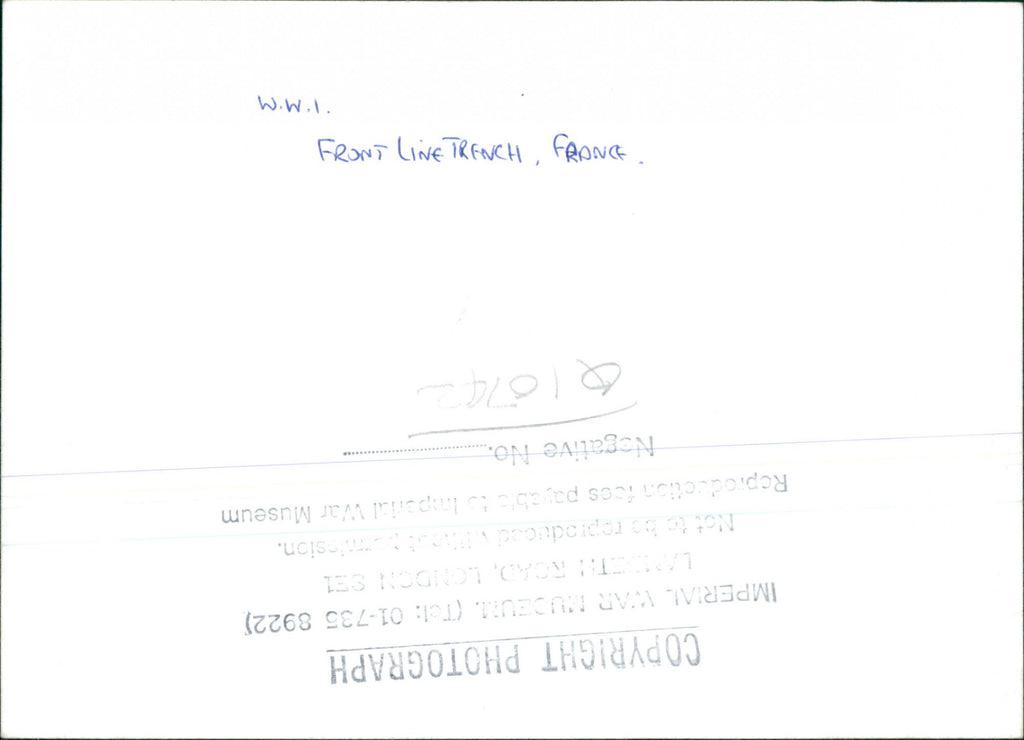 W.W.1.
FRONT LINE TRENCH, FRANCE.
COPYRIGHT PHOTOGRAPH
IMPERIAL WAR MUSEUM. (Tel: 01-735 8922)
LAMBETH ROAD, LONDON SE1
Not to be reproduced without permission.
Reproduction fees payable to Imperial War Museum
Negative No.
Q10742